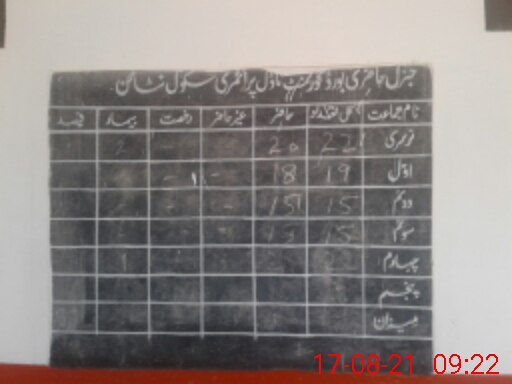 جنرل حاضری بورڈ گورنمنٹ ماڈل پرائمری سکول
نام جماعت کل تعداد حاضر غیر حاضر رخصت بیمار فیصد
نرسری 22 20 - 2
اول 19 18 - 1 -
دوئم 15 15 -
سوئم 15
چہارم 1
پنجم
میزان
17-08-21 09:22